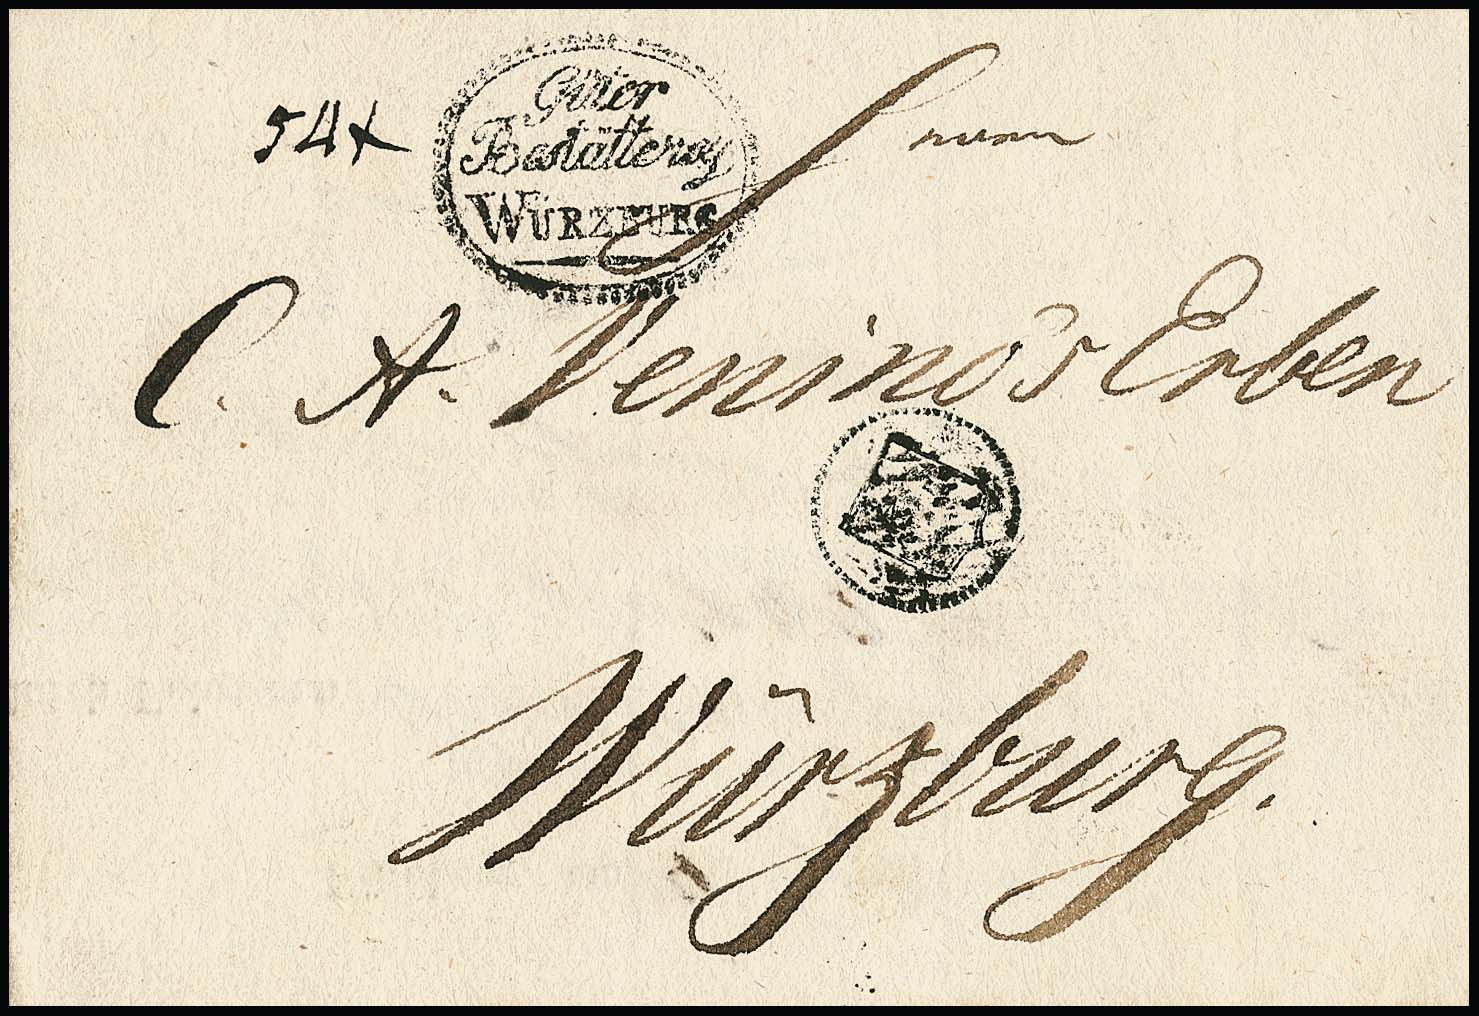 54x
Güter
Bestätterey
WÜRZBURG
C. A. Venino's Erben
Würzburg.